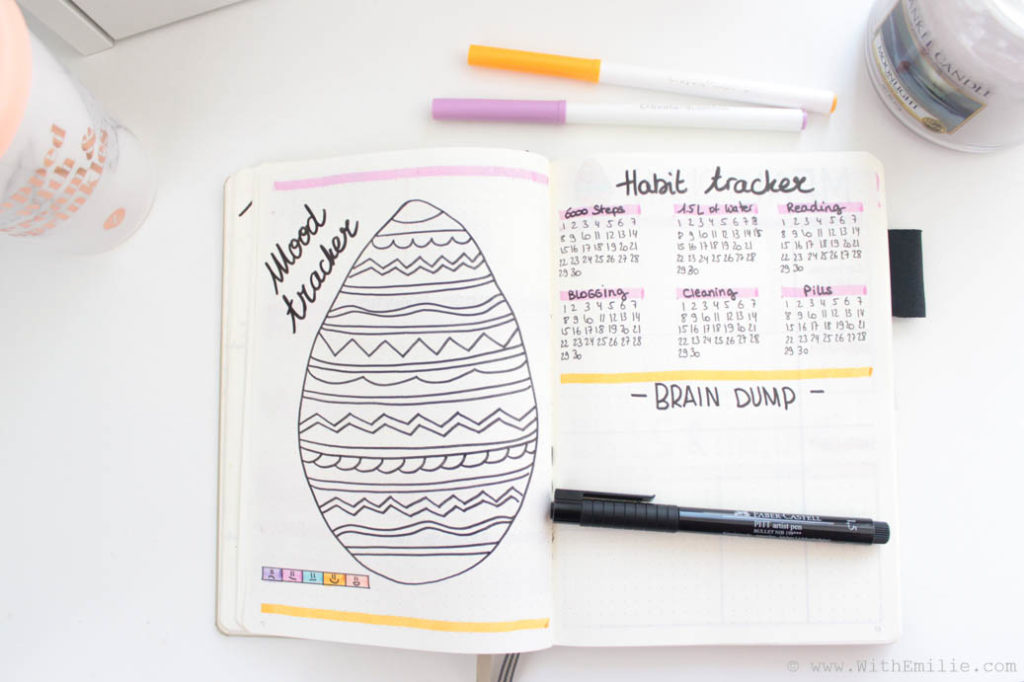 Mood
tracker
Habit tracker
6000 Steps
1 2 3 4 5 6 7
8 9 10 11 12 13 14
15 16 17 18 19 20 21
22 23 24 25 26 27 28
29 30
1.5L of water
1 2 3 4 5 6 7 8
8 9 10 11 12 13 14 15
15 16 17 18 19 20 21
22 23 24 25 26 27 28
29 30
Reading
1 2 3 4 5 6 7
8 9 10 11 12 13 14
15 16 17 18 19 20 21
22 23 24 25 26 27 28
29 30
BLogging
1 2 3 4 5 6 7
8 9 10 11 12 13 14
15 16 17 18 19 20 21
22 23 24 25 26 27 28
29 30
Cleaning
1 2 3 4 5 6 7
8 9 10 11 12 13 14
15 16 17 18 19 20 21
22 23 24 25 26 27 28
29 30
Pills
1 2 3 4 5 6 7
8 9 10 11 12 13 14
15 16 17 18 19 20 21
22 23 24 25 26 27 28
29 30
- BRAIN DUMP -
FABER-CASTELL
PITT artist pen
BULLET NIB
1,5
YANKEE CANDLE
MOONLIGHT
© www.WithEmilie.com